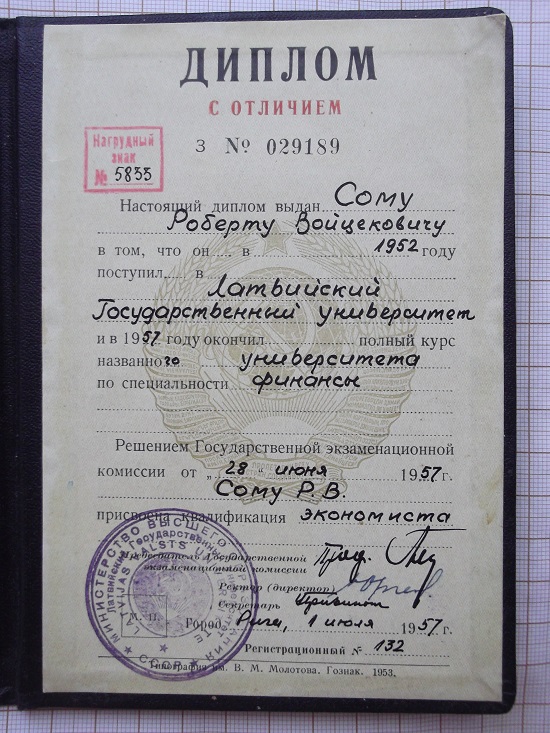 ДИПЛОМ
С ОТЛИЧИЕМ
З № 029189
Нагрудный
знак
№ 5833
Настоящий диплом выдан Сому
Роберту Войцековичу
в том, что он в 1952 году
поступил в
Латвийский
Государственный университет
и в 1957 году окончил полный курс
названного университета
по специальности финансы
Решением Государственной экзаменационной
комиссии от „28“ июня 1957 г.
Сому Р. В.
присвоена квалификация экономиста
Председатель Государственной
экзаменационной комиссии
Ректор (директор)
Секретарь
М. П. Город Рига, 1 июля 1957 г.
Регистрационный № 132
Типография им. В. М. Молотова. Гознак. 1953.
МИНИСТЕРСТВО ВЫСШЕГО ОБРАЗОВАНИЯ СССР